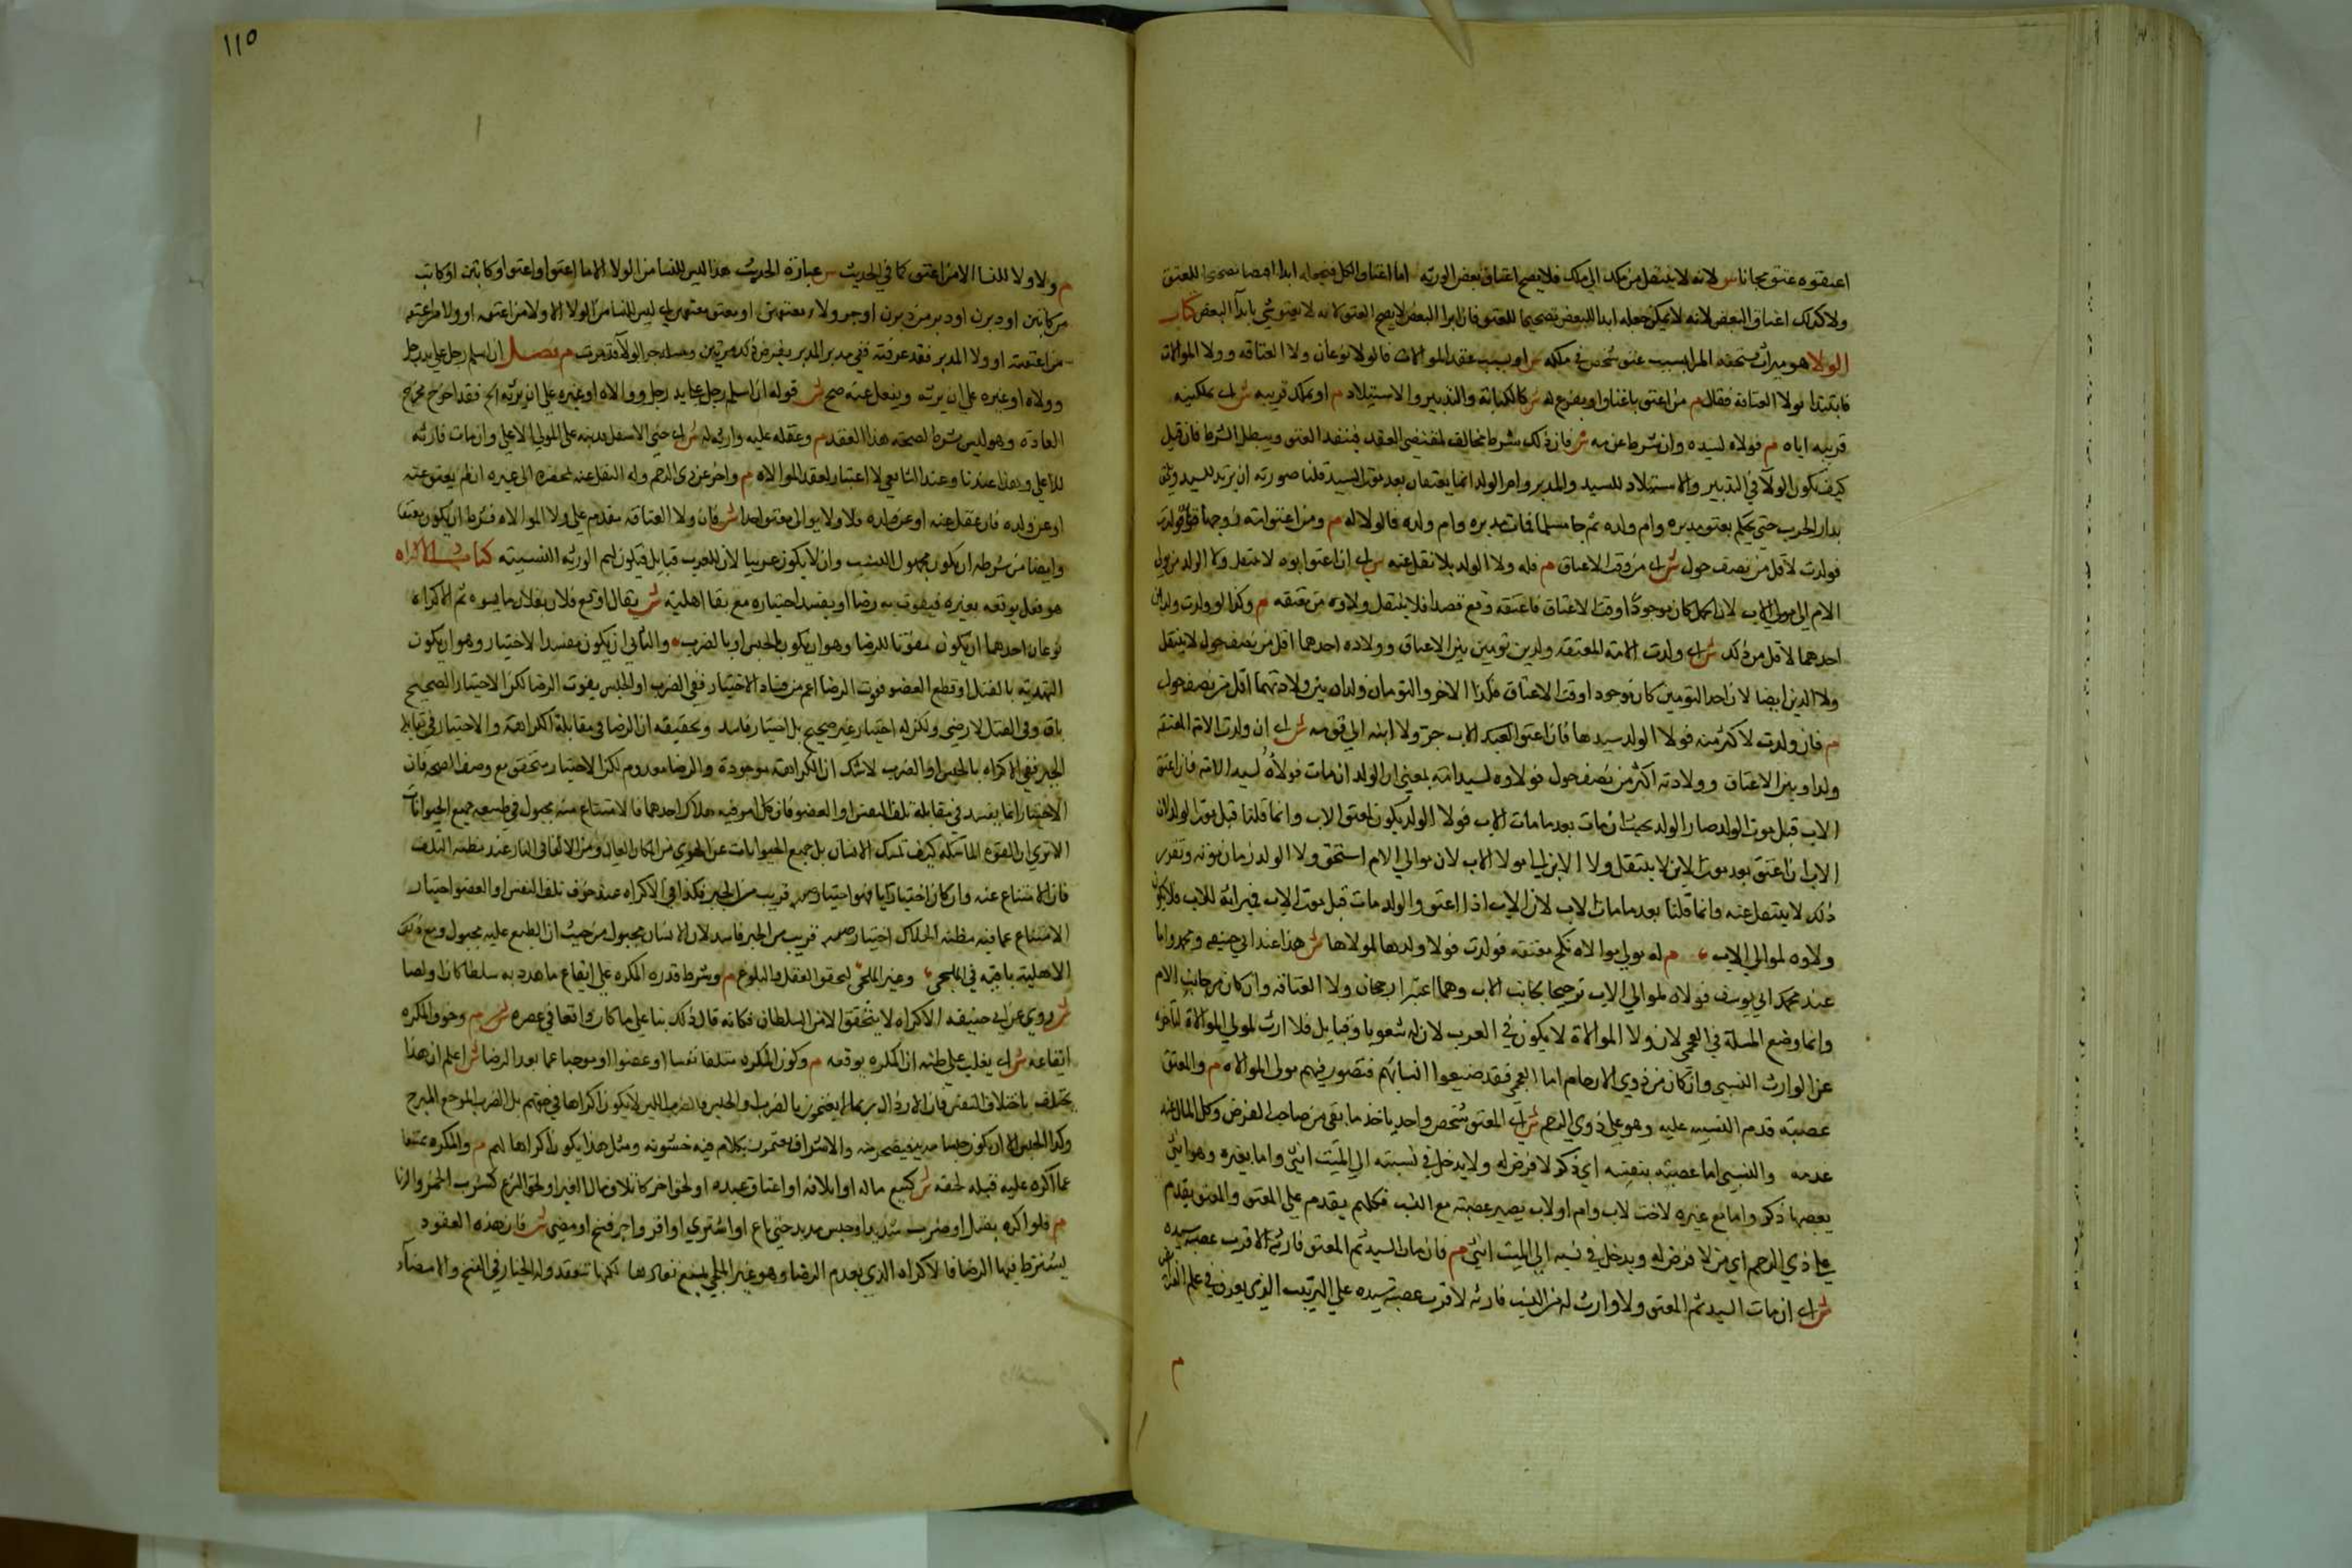 اعتقوه عتق مجانا س لانه لا ينتقل من ملك الى ملك فلا يصح اعتاق بعض الورثة اما اعتاق الكل فيجعل ابدا اقتضا تصحيحا للعتق
ولا كذلك اعتاق البعض لانه لا يمكن جعله ابدا للبعض تصحيحا للعتق فان ابرا البعض لا يصح العتق لانه لا يعتق شي بابرا البعض كتاب
الولا هو ميراث يستحقه المرا بسبب عتق شخص في ملكه س او بسبب عقد الموالات فالولا نوعان ولا العتاقه وولا الموالات
فابتدا بولا العتاقة فقال م من اعتق باعتاق او بفرع له ش كالكتابة والتدبير والاستيلاد م او بملك قريبه ش اى بملكيته
قريبه اياه م فولاه لسيده وان شرط عدمه ش فان ذلك شرط مخالف لمقتضى العقد فينفد العتق ويبطل الشرط فان قيل
كيف يكون الولا في التدبير والاستيلاد للسيد والمدبر وام الولد انما يعتقان بعد موت السيد قلنا صورته ان يرتد السيد ويلحق
بدار الحرب حتى يحكم بعتق مدبره وام ولده ثم جا مسلما فمات مدبره وام ولده فالولا له م ومن اعتق امته زوجها قن فولدت
فولدت لاقل من نصف حول ش اى من وقت الاعتاق م فله ولا الولد بلا نقل عنه س اى ان اعتق ابوه لا ينتقل ولا الولد من موالى
الام الى موالى الاب لان الحمل كان موجودا وقت الاعتاق فاعتقه وقع قصدا فلا ينتقل ولاوه من معتقه م وكذا لو ولدت ولدين
احدهما لاقل من ذلك ش اى ولدت الامة المعتقة ولدين توءمين بين الاعتاق وولاده احدهما اقل من نصف حول لا ينتقل
ولا الذين ايضا لان احد التومين كان موجودا وقت الاعتاق فكذا الاخر والتومان ولدان بين ولادتهما اقل من نصف حول
م فان ولدت لاكثر منه فولا الولد لسيدها فان اعتق العبد الاب جر ولا ابنه الى قومه ش اى ان ولدت الامة المعتقة
ولدا وبين الاعتاق وولادته اكثر من نصف حول فولاوه لسيد امه بمعنى ان الولد ان مات فولاه لسيد الامة فان اعتق
الاب قبل موت الولد صار الولد بحيث ان مات بعد ما مات الاب فولا الولد يكون لمعتق الاب وانما قلنا قبل موت الولد لان
الاب ان اعتق بعد موت الابن لا ينتقل ولا الابن الى مولا الاب لان موالى الام استحق ولا الولد زمان موته وتقرر
ذلك لا ينتقل عنه وانما قلنا بعد ما مات الاب لان الاب اذا اعتق والولد مات قبل موت الاب فميراثه للاب فلا يكون
ولاوه لموالى الاب م له مولى موالاه نكح معتقه فولدت فولا ولدها لمولاها ش هذا عند ابى حنيفه ومحمد واما
عند محمد ابي يوسف فولاه لموالى الاب ترجيحا بجانب الاب وهما اعتبرا رجحان ولا العتاقه وان كان من جانب الام
وانما وضع المسلة في العجم لان ولا الموالاة لا يكون في العرب لان له شعوبا وقبايل فلا ارث لمولى الموالاة لتاخره
عن الوارث النسبى وان كان من ذوي الارحام اما العجم فقد ضيعوا انسابهم فتصور فيهم مولى الموالاه م والمعتق
عصبة قدم النسبيه عليه وهو على ذوي الرحم ش اى المعتق شخص واحد ياخذ ما بقى من صاحب الفرض وكل المال عند
عدمه والنسبى اما عصبه بنفسه اي ذكر لا فرض له ولا يدخل في نسبته الى الميت انثى واما بغيره وهو انثى
يعصبها ذكر واما مع غيره لاخت لاب وام او لاب يصير عصبة مع البنت فكلهم يقدم على المعتق والمعتق يقدم
على ذي الرحم اي من لا فرض له ويدخل في نسبه الى الميت انثى م فان مات السيد ثم المعتق فارثه لاقرب عصبة سيده
ش اى ان مات السيد ثم المعتق ولا وارث له من النسب فارثه لاقرب عصبة سيده على الترتيب الذي يعرف في علم الفرايض
م
١١٥
م ولا ولا للنسا الا من اعتقن كما في الحديث س عبارة الحديث هذا ليس للنسا من الولا الا ما اعتقن او اعتق من اعتقن او كاتبن او كاتب
من كاتبن او دبرن او دبر من دبرن او جر ولا معتقهن او معتق معتقهن اى ليس للنسا من الولا الا ولا من اعتقه او ولا من اعتقه
من اعتقته او ولا المدبر فقد عرفته ففى مدبر المدبر يفرض ذلك مرتين ومسلة جر الولا قد مرت م فصل ان اسلم رجل على يد رجل
وولاه او غيره على ان يرثه ويعقل عنه صح ش قوله ان اسلم رجل على يد رجل ووالاه او غيره على ان يرثه الخ فقد اخرج مخرج
العادة وهو ليس شرط لصحة هذا العقد م وعقله عليه وارثه له ش اى جنى الاسفل فديته على المولى الاعلى وان مات فارثه
للاعلى وهذا عندنا وعند الشافعى لا اعتبار لعقد الموالاه م واخر عن ذى الرحم وله النقل عنه بمحضره الى غيره ان لم يعقل عنه
او عن ولده فان عقل عنه او عن ولده فلا ولا يوالى معتق احدا ش فان ولا العتاقه مقدم على ولا الموالاه فشرط ان يكون معتقا
وايضا من شرطه ان يكون مجهول النسب وان لا يكون عربيا لان للعرب قبايل فيكون لهم الورثه النسبيته كتاب الاكراه
هو فعل يوقعه بغيره فيفوت به رضاه او يفسد اختياره مع بقا اهليته ش يقال اوقع فلان بفلان ما يسوه ثم الاكراه
نوعان احدهما ان يكون مفوتا للرضا وهو ان يكون بالحبس او بالضرب والثاني ان يكون مفسدا لاختيار وهو ان يكون
التهديد بالقتل او قطع العضو ففوت الرضا اعم من فساد الاختيار ففى الضرب او الحبس يفوت الرضا لكن الاختيار الصحيح
باق وفى القتل لا رضى ولكن له اختيار غير صحيح بل اختيار فاسد وتحقيقه ان الرضا في مقابلة الكراهة والاختيار في مقابلة
الجبر ففى الاكراه بالحبس او الضرب لا شك ان الكراهة موجودة والرضا معدوم لكن الاختيار متحقق مع وصف الصحة فان
الاختيار انما يفسد في مقابلة تلف النفس او العضو فان كل امر فيه هلاك احدهما فالامتناع عنه مجبول في طبيعه جميع الحيوانات
الا ترى ان القوة الماسكة كيف تمسك الانسان بل جميع الحيوانات عن الهوى من المكان العالى ومن الالقا في النار عند مظنه التلف
فان الامتناع عنه وان كان اختياريا فهو اختيار قريب من الجبر فكذا في الاكراه عند خوف تلف النفس او العضو اختيار
الامتناع عما فيه مظنة الهلاك اختيار قريب من الجبر فاسد لان الانسان مجبول من حيث ان الطبع عليه مجبول ومع ذلك
الاهلية باقية في الملجى وغير الملجى لتحقق العقل والبلوغ م وشرط قدره المكره على ايقاع ما هدد به سلطانا كان او لصا
ش روي عن ابى حنيفه الاكراه لا يتحقق الا من السلطان فكانه قال ذلك بنا على ما كان واقعا في عصره م وخوف المكره
ايقاعه ش اى يغلب على ظنه ان المكره يوقعه م وكون المكره متلفا نفسا او عضوا او موجبا غما يعدم الرضا ش اعلم ان هذا
يختلف باختلاف النفس فان الارذال ربما لا يغتمون بالضرب والحبس فالضرب اللين لا يكون اكراها في حقهم بل الضرب الموجع المبرح
وكذا الحبس الا ان يكون حبسا مديدا يتضجر منه والاشراف يغتمون بكلام فيه خشونه ومثل هذا يكون اكراها لهم م والمكره ممتنعا
عما اكره عليه قبله لحقه ش كبيع ماله او اتلافه او اعتاق عبده او لحق اخر كاتلاف مال الغير او لحق الشرع كشرب الخمر والزنا
م فلو اكره بقتل او ضرب شديد او حبس مديد حتى باع او اشترى او اقر او اجر فسخ او مضى ش فان هذه العقود
يشترط فيها الرضا فالاكراه الذي يعدم الرضا وهو غير الملجى يمنع نفاذها لكنها تنعقد وله الخيار في الفسخ والامضاء